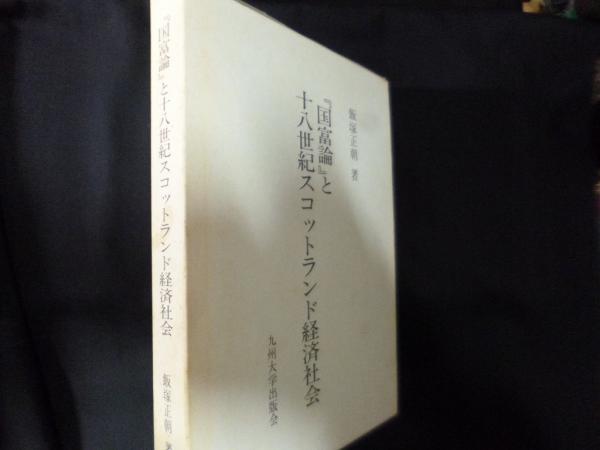 『国富論』と十八世紀スコットランド経済社会
飯塚正朝 著
飯塚正朝 著
『国富論』と
十八世紀スコットランド経済社会
九州大学出版会